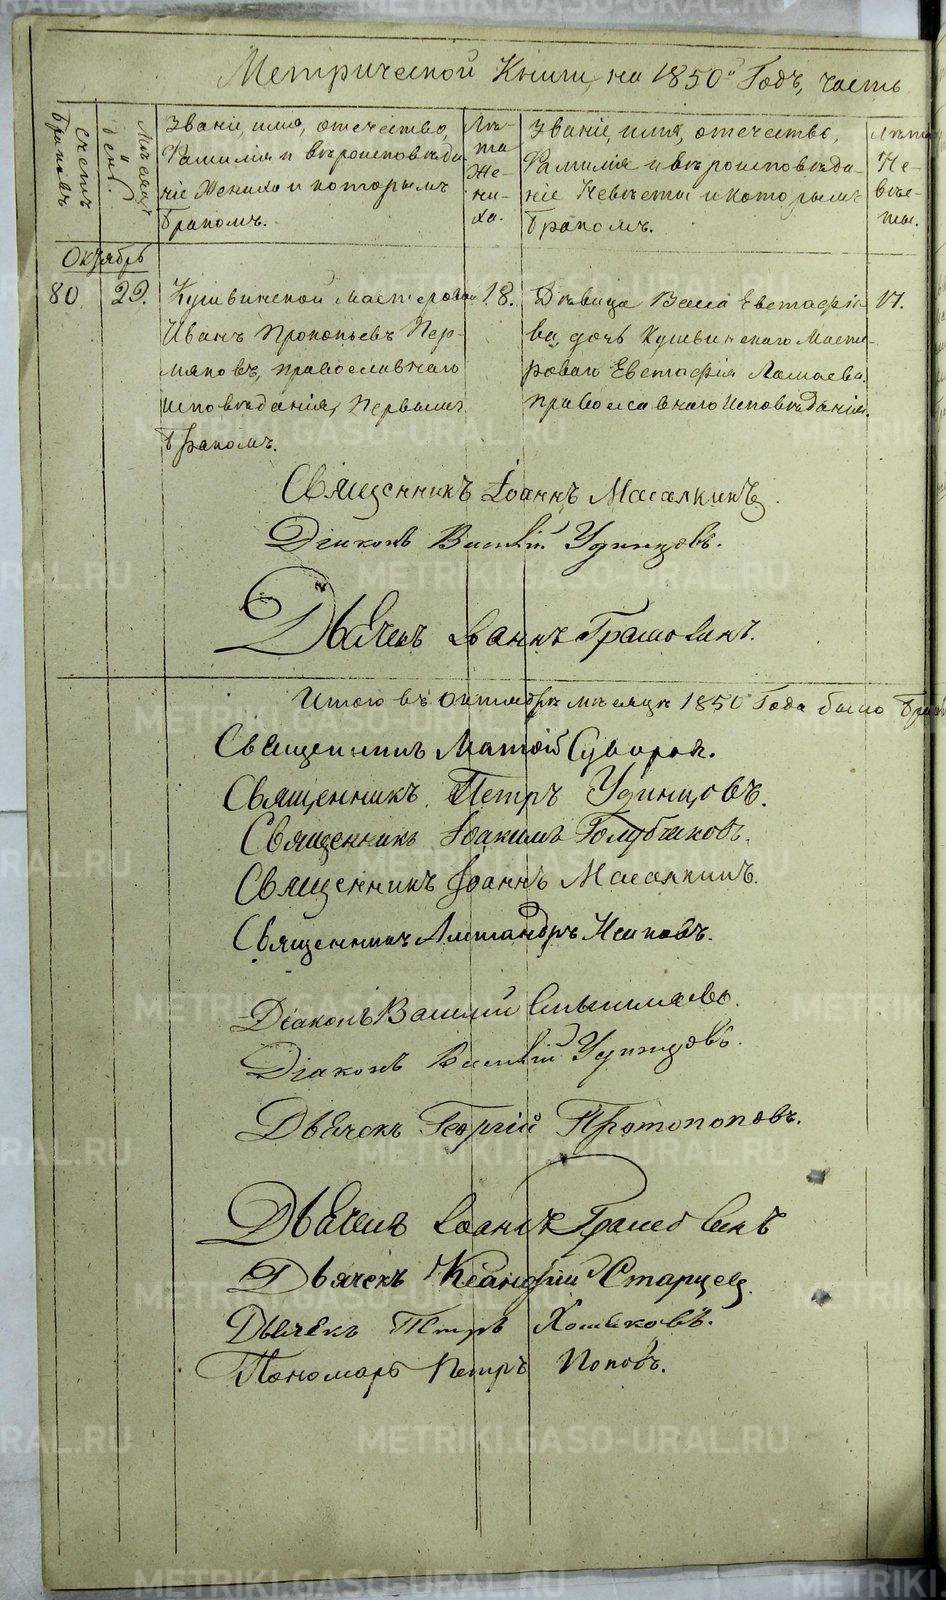 Метрической Книги, на 1850й Годъ, часть
Счетъ Браковъ
Мѣсяцъ день.
Званіе, имя, отечество, Фамилія и вѣроисповѣданіе Жениха и которымъ Бракомъ.
Лѣта Жениха.
Званіе, имя, отечество, Фамилія и вѣроисповѣданіе Невѣсты и которымъ Бракомъ.
Лѣта Невѣсты.
Октябрь
80. 29. Кушвинской мастеровой 18. Дѣвица Васса Евстафіе- 17.
Иванъ Прокопьевъ Пер- ва, дочь Кушвинскаго Масте-
мяковъ, православнаго роваго Евстафія Ламаева
исповѣданія, Первымъ православнаго Исповѣданія.
Бракомъ.
Священникъ Іоаннъ Масалкинъ.
Діаконъ Василій Удинцовъ.
Дьячекъ Іоаннъ
Итого въ октябрѣ мѣсяцѣ 1850 Года было
Священникъ Матѳій Суворов.
Священникъ Петръ Удинцовъ.
Священникъ Іоакимъ Голубчиковъ.
Священникъ Іоаннъ Масалкинъ.
Священникъ Александръ
Діаконъ Василій
Діаконъ Василій Удинцовъ.
Дьячекъ Георгій Протопоповъ.
Дьячекъ Іоаннъ
Дьячекъ Старцев
Дьячекъ Петръ Хомяковъ.
Пономарь Петръ Поповъ.
METRIKI.GASO-URAL.RU